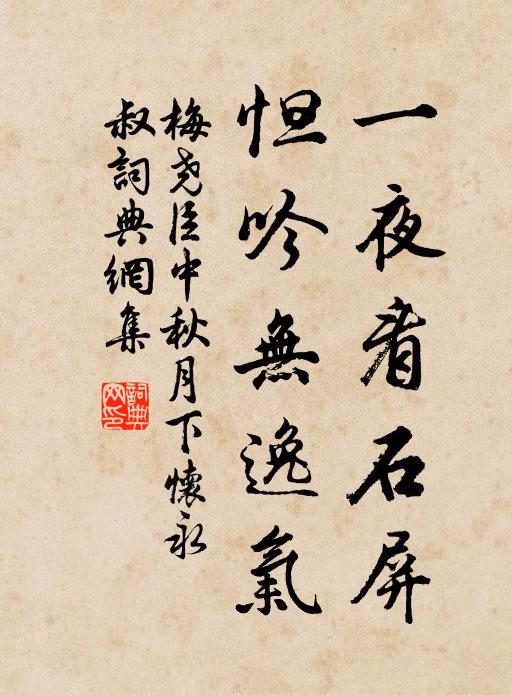 一夜看石屏
怛吟無逸氣
梅尧臣中秋月下懷永
叔詞典網集
詞典
网印